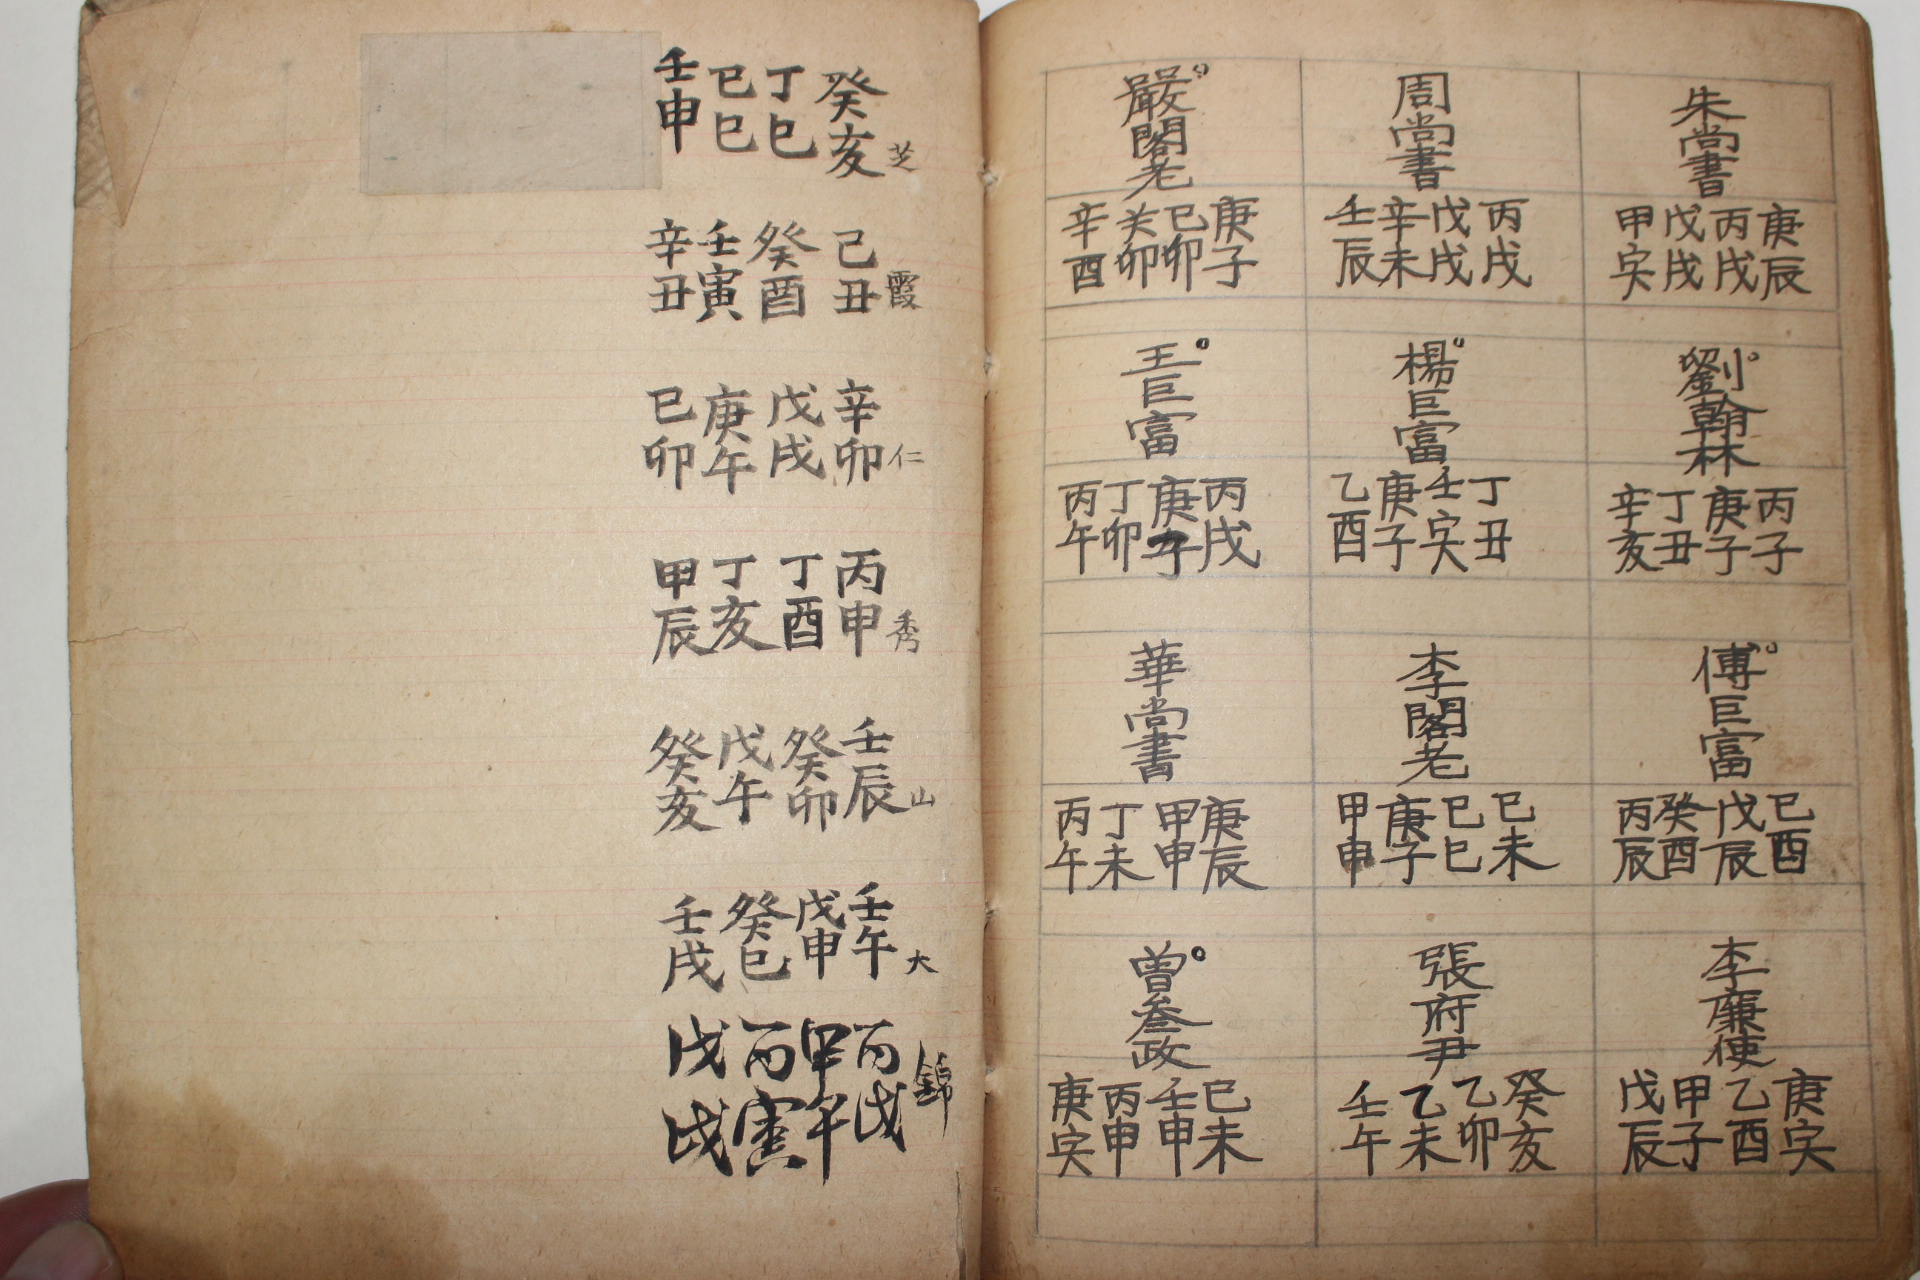 朱尚書
庚辰 丙戌 戊戌 甲寅
周尚書
丙戌 戊戌 辛未 壬辰
嚴閣老
庚子 己卯 癸卯 辛酉
劉翰林
丙子 庚子 丁丑 辛亥
楊巨富
丁丑 壬寅 庚子 乙酉
王巨富
丙戌 庚子 丁卯 丙午
傅巨富
己酉 戊辰 癸酉 丙辰
李閣老
己未 己巳 庚子 甲申
華尚書
庚辰 甲申 丁未 丙午
李廉使
庚寅 乙酉 甲子 戊辰
張府尹
癸亥 乙卯 乙未 壬午
曾叅政
己未 壬申 丙申 庚寅
芝
癸亥 丁巳 己巳 壬申
霞
己丑 癸酉 壬寅 辛丑
仁
辛卯 戊戌 庚午 己卯
秀
丙申 丁酉 丁亥 甲辰
山
壬辰 癸卯 戊午 癸亥
大
壬午 戊申 癸巳 壬戌
錦
丙戌 甲午 丙寅 戊戌